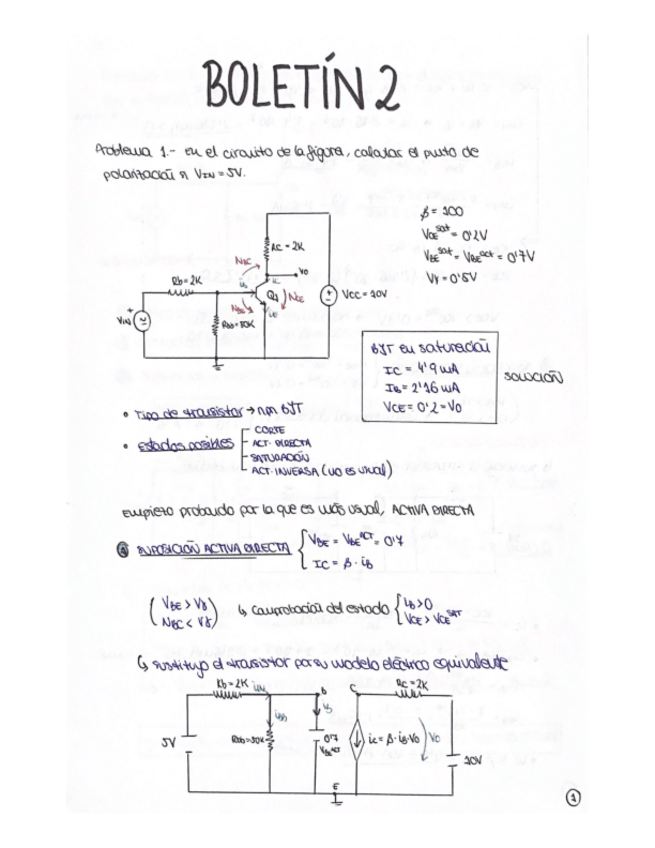 BOLETÍN 2
Problema 1.- En el circuito de la figura, calcular el punto de
polarización si VIN = 5V.
β = 100
VCE^sat = 0'2V
VBE^sat = VBE^act = 0'7V
Vγ = 0'5V
RC = 2K
VBC
Vo
Rb = 2K
ib
ic
Q1
VCE
VCC = 10V
VIN
VBE
ie
Rbb = 10K
BJT en saturación
IC = 4'9 mA
IB = 2'16 mA
VCE = 0'2 = Vo
SOLUCIÓN
• Tipo de transistor → npn BJT
• Estados posibles
CORTE
ACT. DIRECTA
SATURACIÓN
ACT. INVERSA (no es usual)
Empiezo probando por la que es más usual, ACTIVA DIRECTA
SUPOSICIÓN ACTIVA DIRECTA
VBE = VBE^ACT = 0'7
IC = β · iB
VBE > Vγ
VBC < Vγ
↳ Comprobación del estado
iB > 0
VCE > VCE^SAT
↳ Sustituyo el transistor por su modelo eléctrico equivalente
Rb = 2K
iIN
B
C
RC = 2K
iB
5V
Rbb = 10K
0'7
VBE^ACT
Vo
10V
E
1